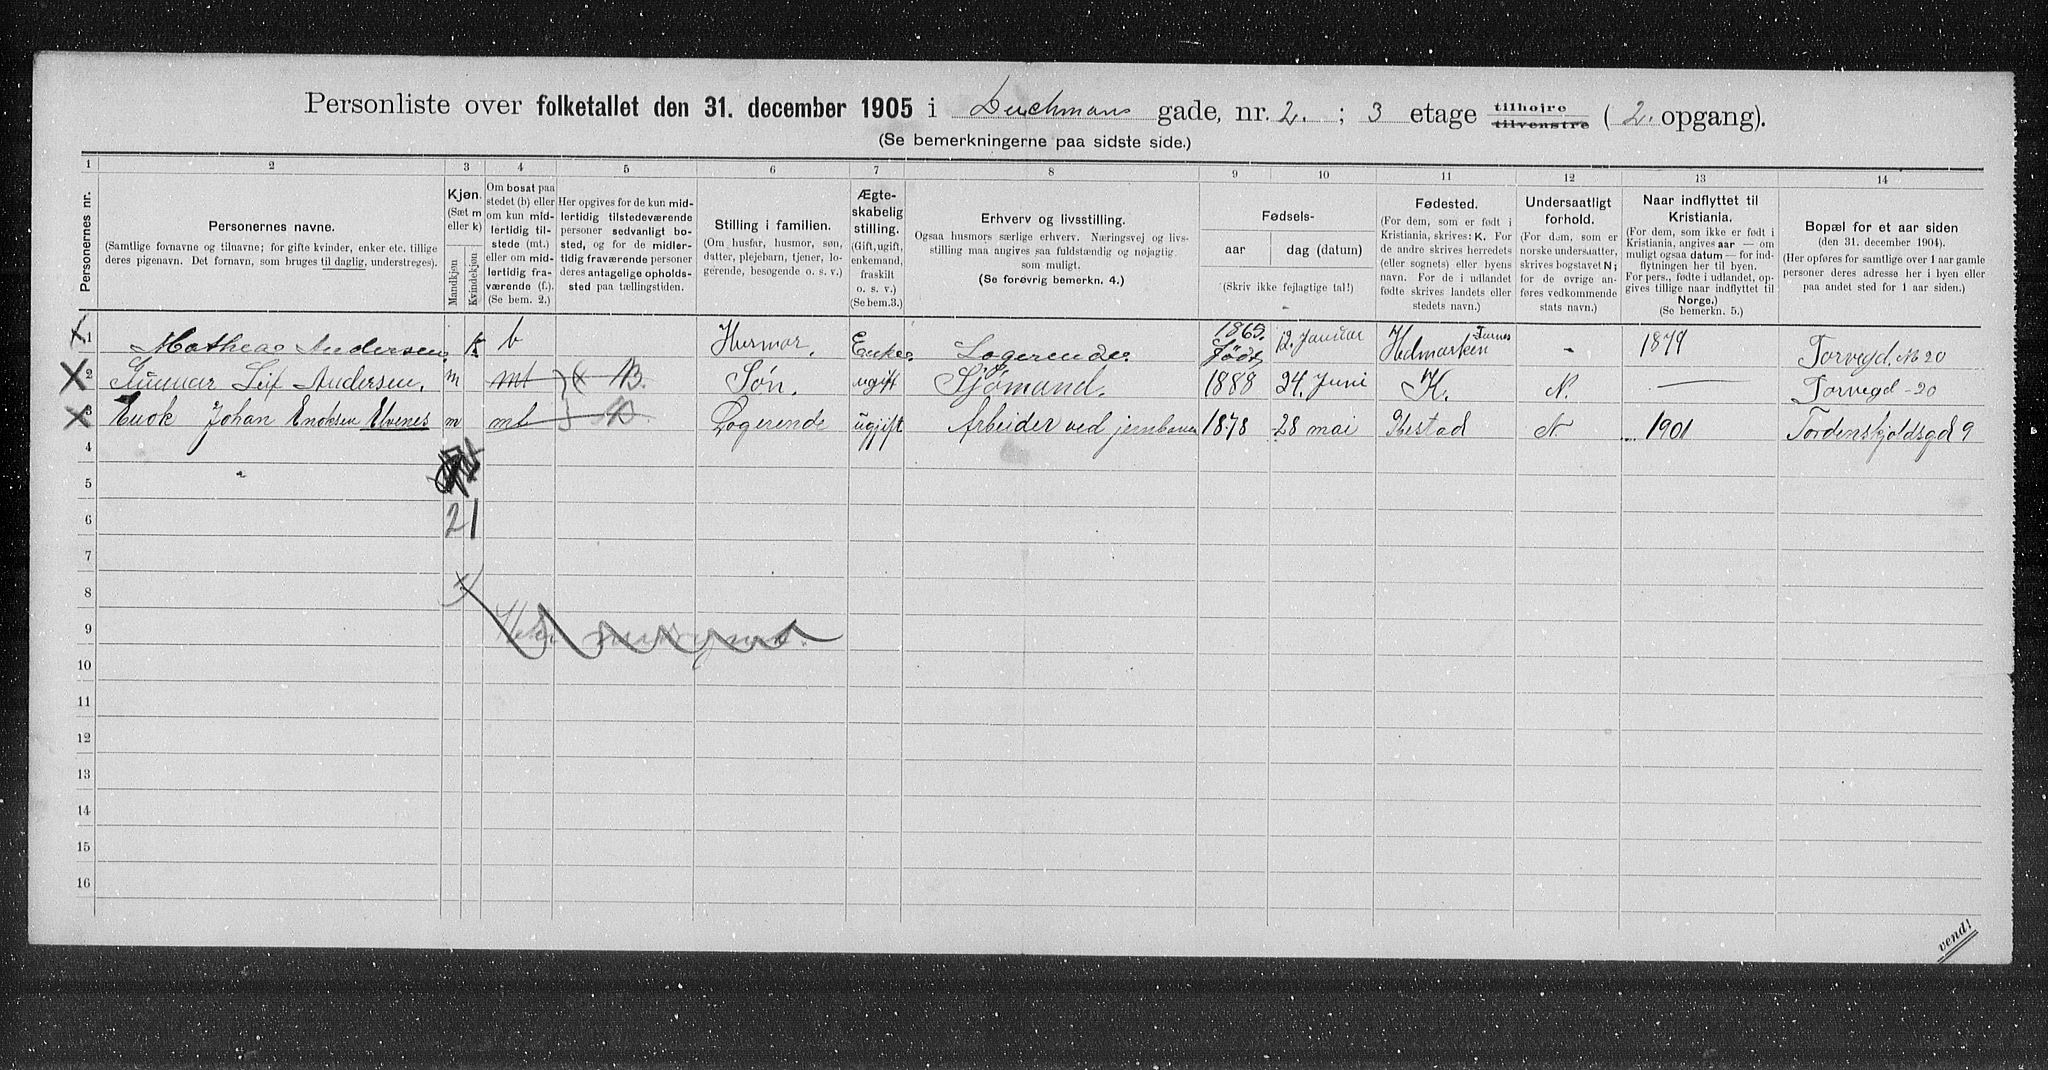 Personliste over folketallet den 31. december 1905 i Deichmans gade, nr. 2. ; 3 etage tilhøjre tilvenstre ( 2. opgang).
(Se bemerkningerne paa sidste side.)
1 2 3 4 5 6 7 8 9 10 11 12 13 14
Personernes nr.
Personernes navne.
(Samtlige fornavne og tilnavne; for gifte kvinder, enker etc. tillige
deres pigenavn. Det fornavn, som bruges til daglig, understreges).
Kjøn.
(Sæt m
eller k)
Mandkjøn
Kvindekjøn
Om bosat paa
stedet (b) eller
om kun mid-
lertidig til-
stede (mt.)
eller om mid-
lertidig fra-
værende (f.).
(Se bem. 2.)
Her opgives for de kun mid-
lertidig tilstedeværende
personer sedvanlig bo-
sted, og for de midler-
tidig fraværende personer
deres antagelige opholds-
sted paa tællingstiden.
Stilling i familien.
(Om husfar, husmor, søn,
datter, plejebarn, tjener, lo-
gerende, besøgende o. s. v.)
Ægte-
skabelig
stilling.
(Gift, ugift,
enkemand,
fraskilt
o. s. v.)
(Se bem.3.)
Erhverv og livsstilling.
Ogsaa husmors særlige erhverv. Næringsvej og livs-
stilling maa angives saa fuldstændig og nøjagtig
som muligt.
(Se forøvrig bemerkn. 4.)
Fødsels-
aar dag (datum)
(Skriv ikke fejlagtige tal!)
Fødested.
(For dem, som er født i
Kristiania, skrives: K. For
de andre skrives herredets
(eller sognets) eller byens
navn. For de i udlandet
fødte skrives landets eller
stedets navn.)
Undersaatligt
forhold.
(For dem, som er
norske undersaatter,
skrives bogstavet N;
for de øvrige an-
føres vedkommende
stats navn.)
Naar indflyttet til
Kristiania.
(For dem, som ikke er født i
Kristiania, angives aar — om
muligt ogsaa datum — for ind-
flytningen her til byen.
For pers., fødte i udlandet, op-
gives tillige naar indflyttet til
Norge.)
(Se bemerkn. 5.)
Bopæl for et aar siden
(den 31. december 1904).
(Her opføres for samtlige over 1 aar gamle
personer deres adresse her i byen eller
paa andet sted for 1 aar siden.)
1 Mathea Andersen. K b Husmor. Enke. Logerende. 1865 Født 12. Januar Hedmarken Furnes - 1879 Torvegd. No 20
2 Gunnar Leif Andersen. m mt B. Søn. ugift Sjømand. 1888 24. Juni K. N. — Torvegd - 20
3 Enok Johan Enoksen Elvenes m mt Logerende ugift Arbeider ved jernbanen 1878 28 mai Ibestad N 1901 Tordenskjoldsgd 9
4
5
6 2 1
7
8
9
10
11
12
13
14
15
16
vend!